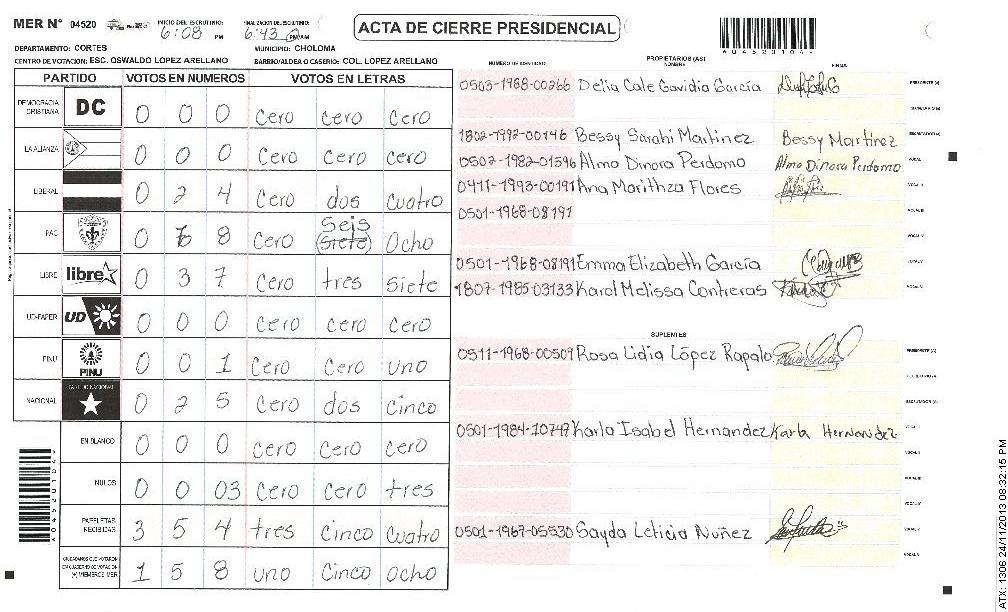 MER N° 04520 INICIO DEL ESCRUTINIO: 6:08 PM FINALIZACION DEL ESCRUTINIO: 6:43 PM/AM
ACTA DE CIERRE PRESIDENCIAL
A04520104
DEPARTAMENTO: CORTES MUNICIPIO: CHOLOMA
CENTRO DE VOTACION: ESC. OSWALDO LOPEZ ARELLANO BARRIO/ALDEA O CASERIO: COL. LOPEZ ARELLANO
PARTIDO VOTOS EN NUMEROS VOTOS EN LETRAS
DEMOCRACIA CRISTIANA DC 0 0 0 Cero Cero Cero
LA ALIANZA 0 0 0 Cero Cero Cero
LIBERAL 0 2 4 Cero dos Cuatro
PAC 0 6 8 Cero Seis (Siete) Ocho
LIBRE libre 0 3 7 Cero tres Siete
UD-FAPER UD 0 0 0 Cero Cero Cero
PINU PINU 0 0 1 Cero Cero Uno
NACIONAL PARTIDO NACIONAL 0 2 5 Cero dos Cinco
EN BLANCO 0 0 0 Cero Cero Cero
NULOS 0 0 03 Cero Cero tres
PAPELETAS RECIBIDAS 3 5 4 tres Cinco Cuatro
CIUDADANOS QUE VOTARON EN CUADERNO DE VOTACION (+) MIEMBROS MER 1 5 8 uno Cinco Ocho
NUMERO DE IDENTIDAD PROPIETARIOS (AS) NOMBRE FIRMA
0503-1988-00266 Delia Cale Gavidia García PRESIDENTE (A)
SECRETARIO (A)
1802-1992-00146 Bessy Sarahi Martinez Bessy Martínez ESCRUTADOR (A)
0502-1982-01596 Alma Dinora Perdomo Alma Dinora Perdomo VOCAL I
0411-1993-00191 Ana Marithza Flores VOCAL II
0501-1968-08191 VOCAL III
VOCAL IV
0501-1968-08191 Emma Elizabeth García VOCAL V
1807-1985-03133 Karol Melissa Contreras VOCAL VI
SUPLENTES
0511-1968-00509 Rosa Lidia López Rapalo PRESIDENTE (A)
SECRETARIO (A)
ESCRUTADOR (A)
0501-1984-10749 Karla Isabel Hernandez Karla Hernandez VOCAL I
VOCAL II
VOCAL III
VOCAL IV
0501-1967-05530 Sayda Leticia Nuñez VOCAL V
VOCAL VI
A04520104
ATX: 1306 24/11/2013 08:32:15 PM